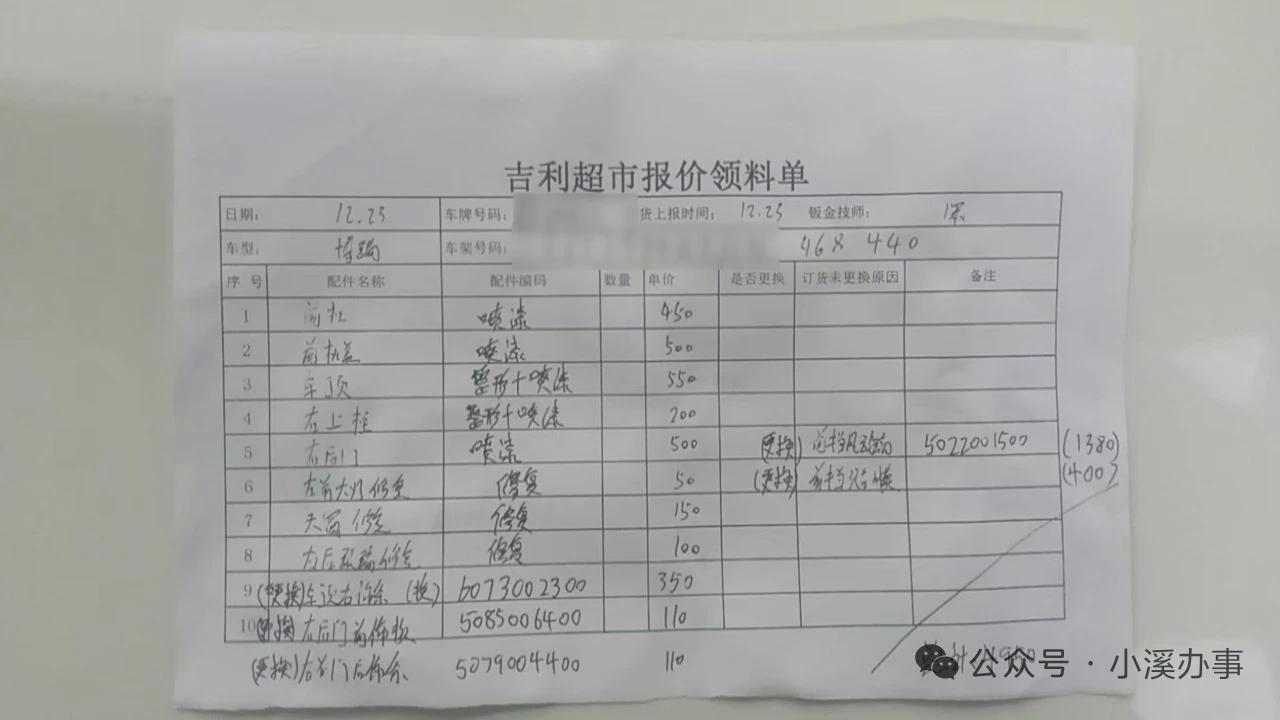 吉利超市报价领料单
日期: 12.23 车牌号码: 货上报时间: 12.23 钣金技师:
车型: 博瑞 车架号码: 468 440
序号 配件名称 配件编码 数量 单价 是否更换 订货未更换原因 备注
1 前杠 喷漆 450
2 前机盖 喷漆 500
3 车顶 整形+喷漆 550
4 右上柱 整形+喷漆 200
5 右后门 喷漆 500 (更换) 前挡风玻璃 5022001500 (1380)
6 左前大灯修复 修复 50 (更换) 前挡 膜 (400)
7 天窗修复 修复 150
8 修复 100
9 (更换) 车顶右饰条 (换) 6073002300 350
10 (更换) 右后门前饰板 5085006400 110
(更换) 右前门后饰条 5079004400 110
公众号 · 小溪办事